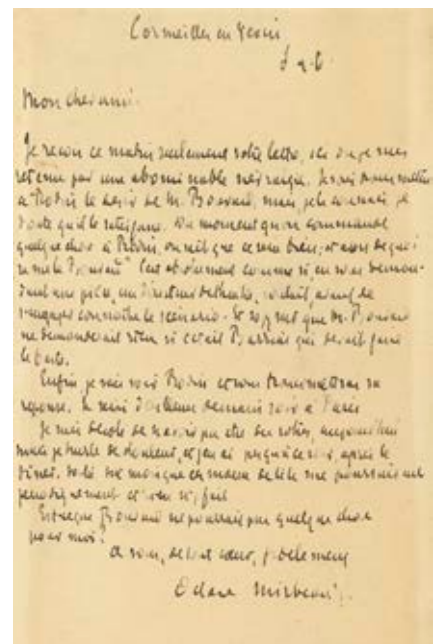 Cormeilles en Vexin
S. et O.
Mon cher ami.
Je reçois ce matin seulement votre lettre, ici où je suis
retenu par une abominable névralgie. Je vais transmettre
à Rodin le désir de M. mais, je le connais, je
doute qu'il le satisfasse. Du moment qu'on commande
quelque chose à Rodin, on sait que ce sera bien, et
C'est absolument comme si en vous deman-
dant une pièce, un directeur de théâtre, voulait, avant de
s'engager connaître le scénario. Et que M.
ne demanderait rien si c'était Barrias qui devait faire
le buste.
Enfin, je vais voir Rodin et vous transmettrai sa
réponse. Je serai d'ailleurs demain soir à Paris
Je suis désolé de n'avoir pu être des vôtres, aujourd'hui
mais je hurle de douleur, et j'en ai jusqu'à ce soir après le
dîner. maux de tête me poursuivent
périodiquement et rien n'y fait
Est-ce que ne pourrait pas quelque chose
pour moi?
À vous, de tout cœur, fidèlement
Octave Mirbeau